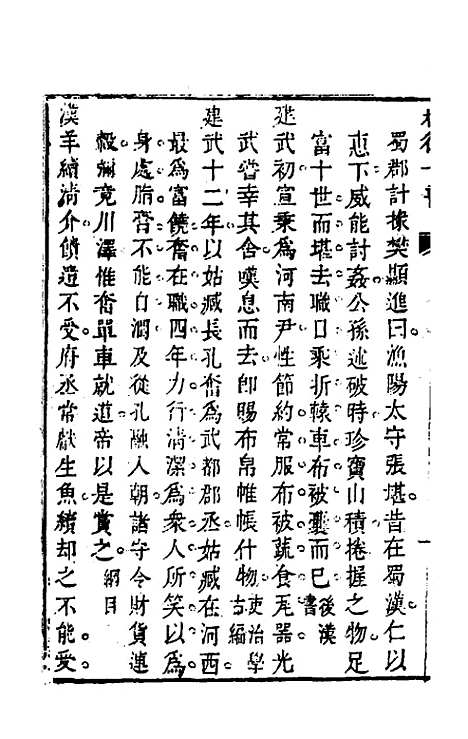 蜀郡計掾樊顯進曰漁陽太守張堪昔在蜀漢仁以
惠下威能討姦公孫述破時珍寶山積捲握之物足
富十世而堪去職日乘折轅車布被囊而已後漢書
建武初宣秉為河南尹性節約常服布被蔬食瓦器光
武嘗幸其舍嘆息而去即賜布帛帷帳什物吏治學古編
建武十二年以姑臧長孔奮為武都郡丞姑臧在河西
最為富饒奮在職四年力行清潔為衆人所笑以為
身處脂膏不能自潤及從孔融入朝諸守令財貨連
轂瀰竟川澤惟奮單車就道帝以是賞之綱目
漢羊續清介饋遺不受府丞常獻生魚續却之不能受